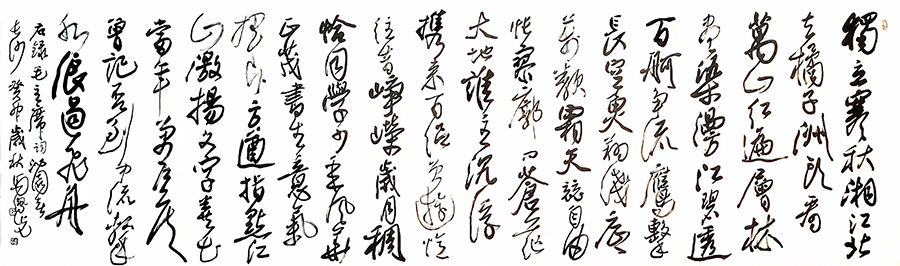 獨立寒秋湘江北
去橘子洲頭看
萬山红遍層林
尽染漫江碧透
百舸争流鷹擊
長空魚翔淺底
萬類霜天競自由
悵寥廓问蒼茫
大地誰主沉浮
携来百侣曾遊憶
往昔崢嶸歲月稠
恰同學少年風華
正茂書生意氣
揮斥方遒指點江
山激揚文字糞土
當年萬户侯
曾記否到中流擊
水浪遏飛舟
右録毛主席詞沁園春
長沙 癸卯歲秋